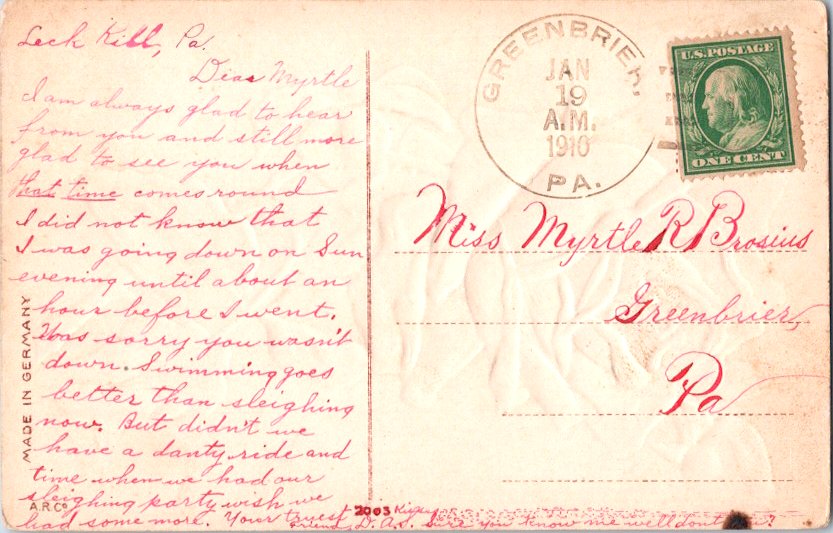 Leck Kill, Pa.
Dear Myrtle
I am always glad to hear
from you and still more
glad to see you when
that time comes round
I did not know that
I was going down on Sun
evening until about an
hour before I went.
Was sorry you wasn't
down. Swimming goes
better than sleighing
now. But didn't we
have a danty ride and
time when we had our
sleighing party wish we
had some more. Your truest
friend, D.A.S. sure you know me well dont you?
MADE IN GERMANY
A.R.Co
2003
GREENBRIER,
JAN
19
A.M.
1910
PA.
U.S. POSTAGE
ONE CENT
Miss Myrtle R Brosius
Greenbrier,
Pa